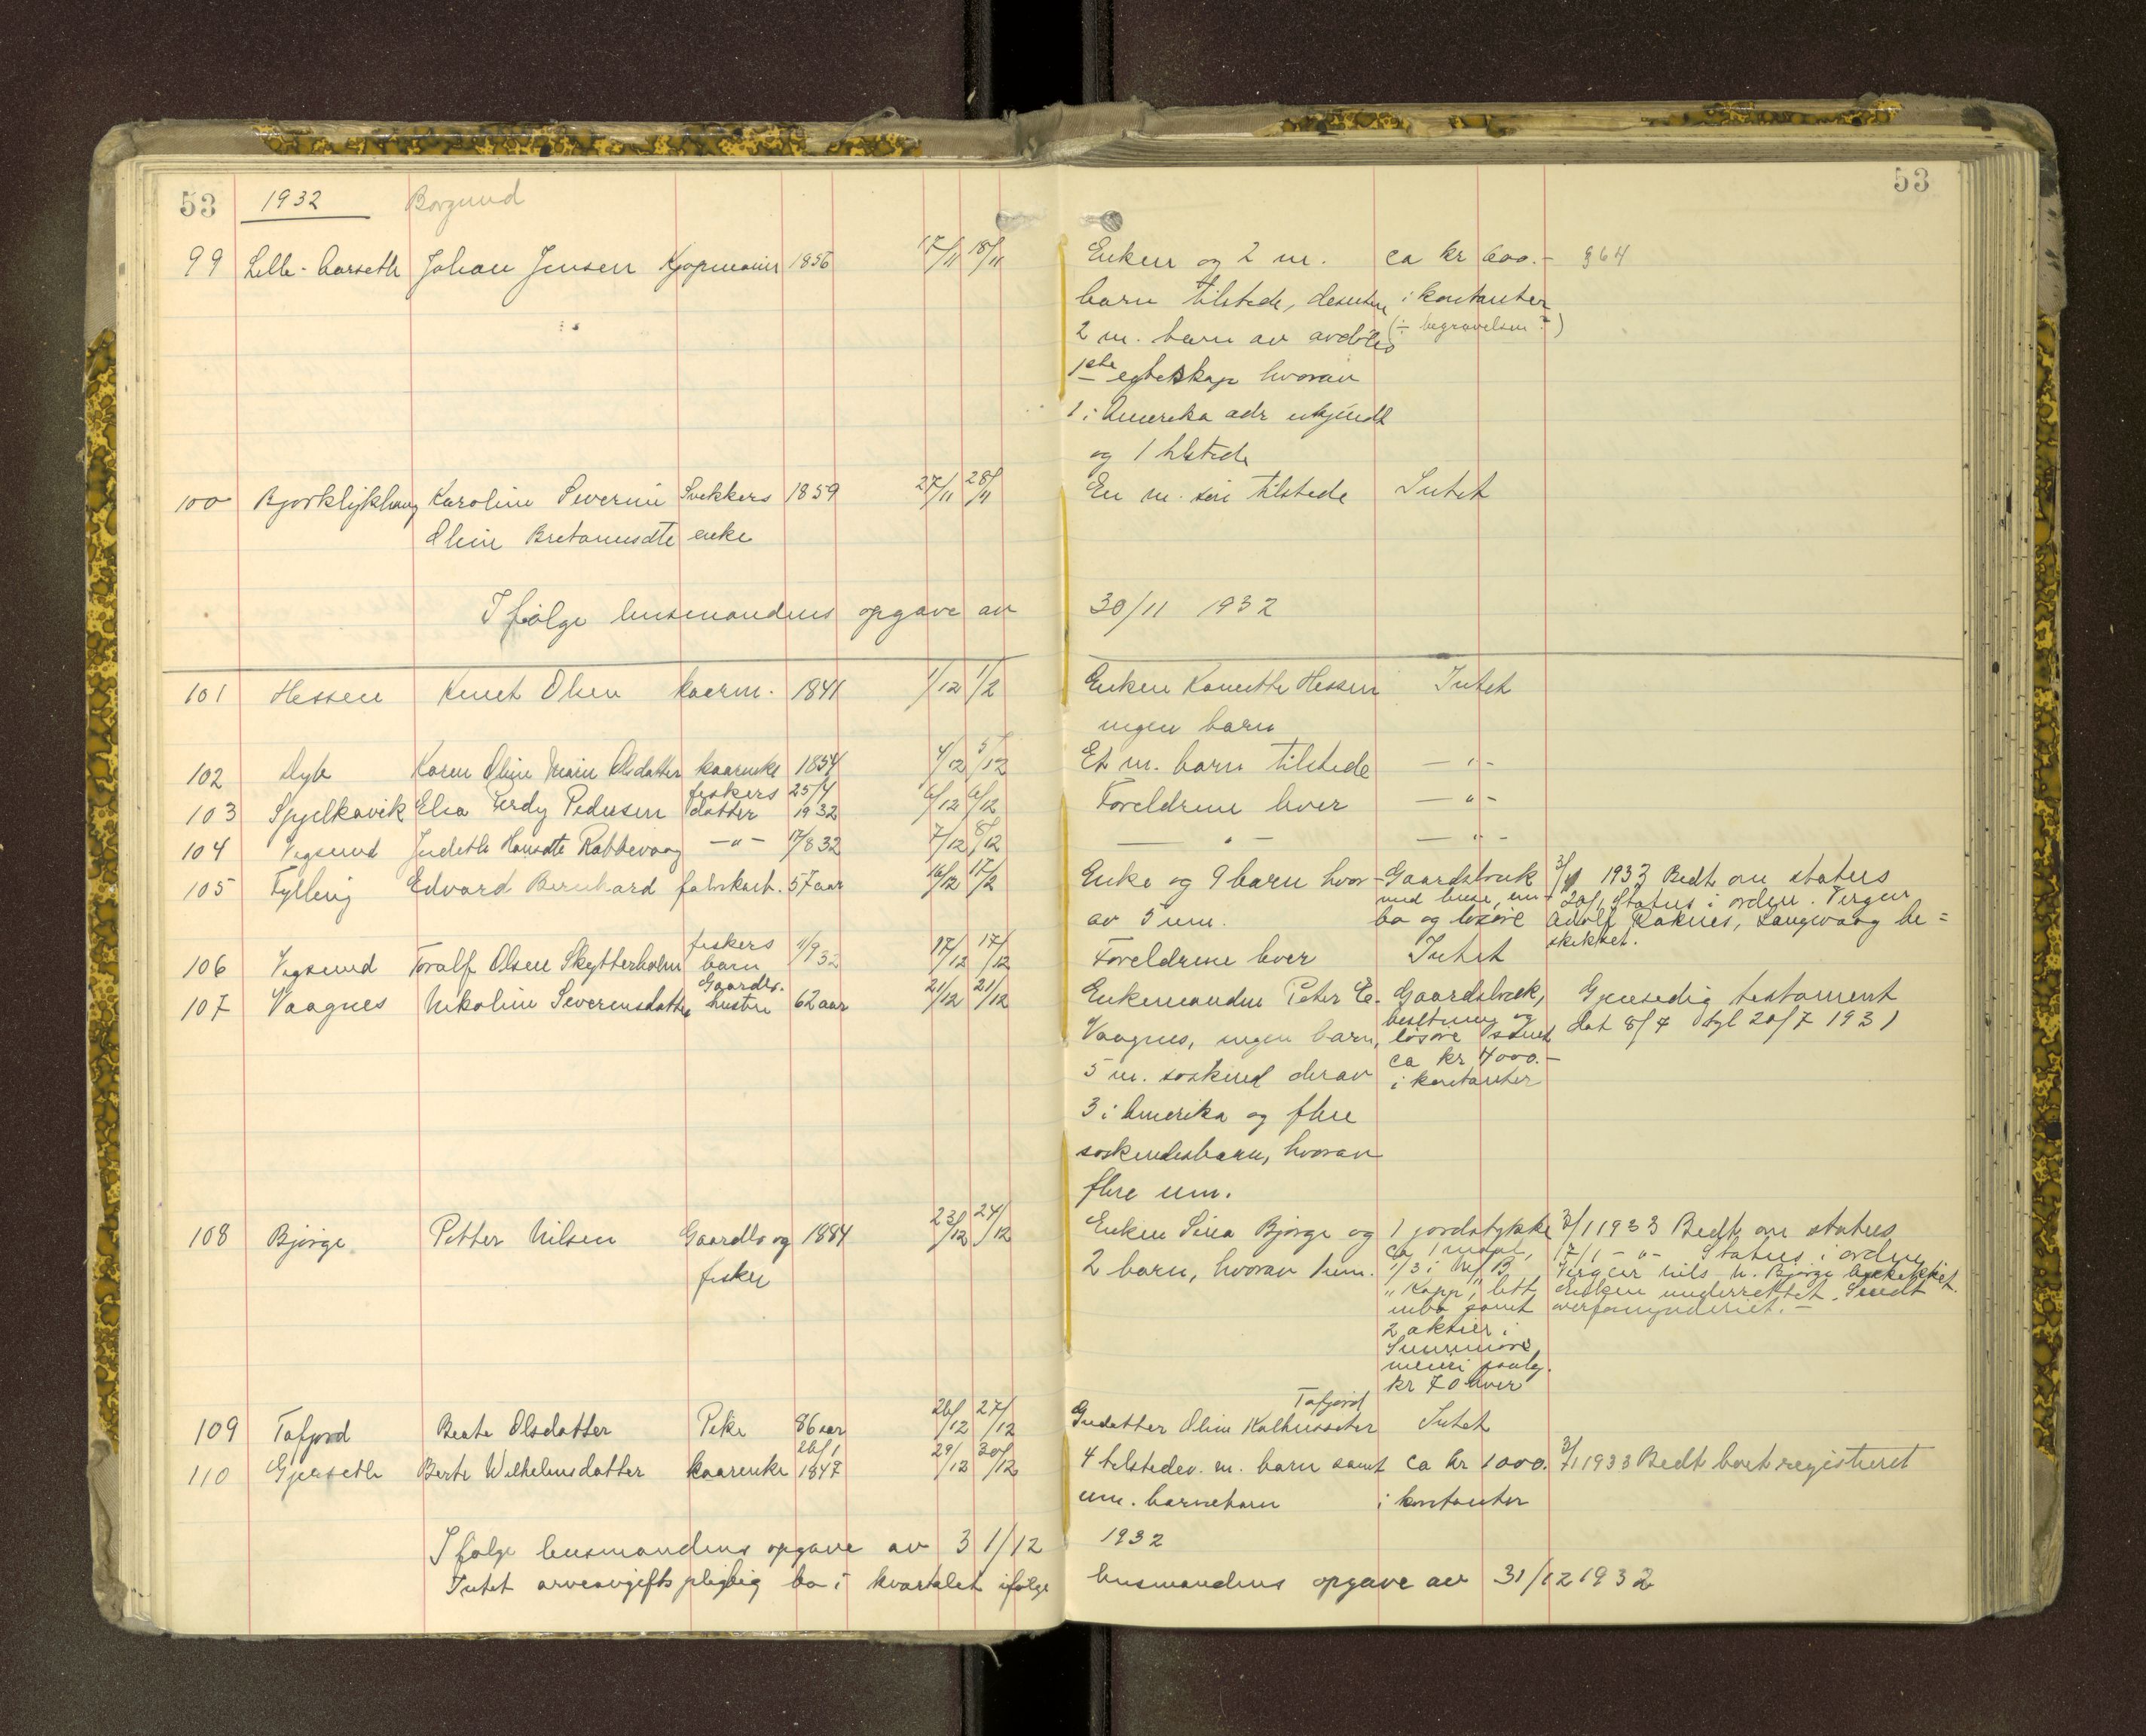 53 1932 Borgund 53
99 Lille-Aarseth Johan Jensen Kjøpmann 1856 17/11 18/11 Enken og 2 m. ca kr 600.- §64
barn tilstede, desuten i kontanter
2 m. barn av avdødes (÷ begravelsen ?)
1ste egteskap hvorav
1 i Amerika adr ukjendt
og 1 tilstede
100 Bjørklykhaug Karoline Severine Snekkers 1859 27/11 28/11 En m. søn tilstede Intet
Oline enke
Ifølge lensmandens opgave av 30/11 1932
101 Hessen Knut Olsen kaarm. 1841 1/12 1/2 Enken Hessen Intet
ingen barn
102 Dyb Karen Oline Marie Olsdatter kaarenke 1854 4/12 5/12 Et m. barn tilstede — " -
103 Spjelkavik Elsa Gerdy Pedersen fiskers datter 25/4 1932 6/12 6/12 Foreldrene lever — " -
104 Vegsund Judeth Hansdtr Rabbevaag — " — 17/8 32 7/12 8/12 — " — — " -
105 Fylling Edvard Bernhard fabrikarb. 57 aar 16/12 17/2 Enke og 9 barn hvor- Gaardsbruk 3/1 1933 Bedt om status
med huse, inn- 20/1 Status i orden. Verger
av 5 um. bo og løsøre Adolf Raknes, Langevaag be=
skikket.
106 Vegsund Toralf Olsen Skytterholm fiskers barn 11/9 32 17/12 17/12 Foreldrene lever Intet
107 Vaagnes Nikoline Severinsdatter Gaardbr. hustru 62 aar 21/12 21/12 Enkemanden Peter E. Gaardsbruk, Gjensidig testament
besetning og
Vaagnes, ingen barn, løsøre samt dat 8/7 tgl 20/7 1931
ca kr 4000.-
5 m. søskend derav i kontanter
3 i Amerika og flere
søskendebarn, hvorav
flere um.
108 Bjørge Petter Nilsen Gaardbr og 1884 23/12 24/12 Enken Sina Bjørge og 1 jordstykke 3/1 1933 Bedt om status
fisker ca 1 maal, 17/1 - " - Status i orden
2 barn, hvorav 1 um. 1/3 i M/B Verger Nils N. Bjørge beskikket.
"Kapp", litt Enken underrettet. Sendt
inbo samt overformynderiet.-
2 aktier i
Sunnmøre
meieri paalyd.
kr 70 hver
109 Tafjord Beate Olsdatter Pike 86 aar 26/12 27/12 Oline Kalhussæter Tafjord Intet
110 Gjerseth Berte Wilhelmsdatter kaarenke 26/1 1847 29/12 30/12 4 tilstedev. m. barn samt ca kr 1000. 3/1 1933 Bedt boet registreret
um. barnebarn i kontanter
Ifølge lensmandens opgave av 31/12 1932
Intet arveavgiftspligtig bo i kvartalet ifølge lensmandens opgave av 31/12 1932